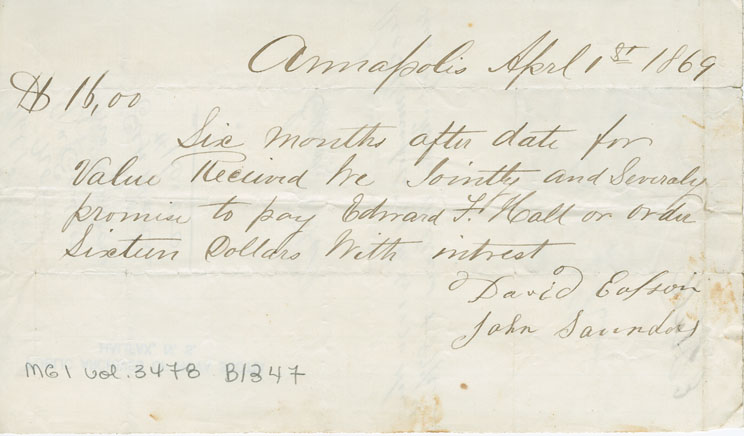 Annapolis Aprl 1st 1869
$ 16,00
Six months after date for
Value Recieved We Jointly and Severaly
promise to pay Edward F. Hall or order
Sixteen Dollars With intrest
David
John Saunders
MG1 vol. 3478 B1347